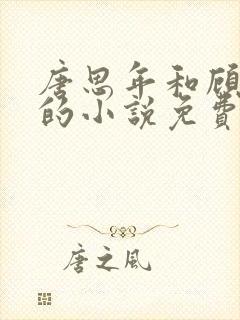 唐思年和顾
的小说免费
唐之风